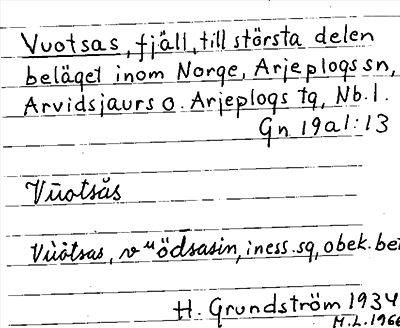 Vuotsas, fjäll, till största delen
beläget inom Norge, Arjeplogs sn,
Arvidsjaurs o. Arjeplogs tg, Nb.l.
Gn 19a1:13
Vūotsăs
iness.sg, obek.
H. Grundström 1934
M.L. 1966